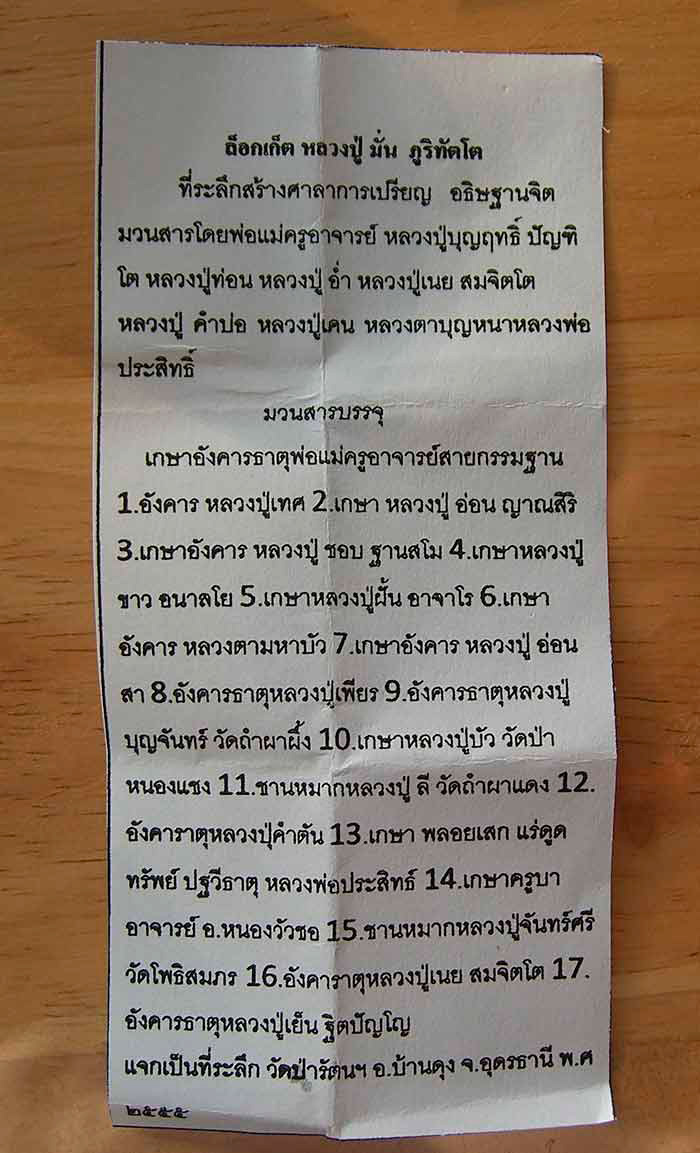 ล็อกเก็ต หลวงปู่ มั่น ภูริทัตโต
ที่ระลึกสร้างศาลาการเปรียญ อธิษฐานจิต
มวนสารโดยพ่อแม่ครูอาจารย์ หลวงปู่บุญฤทธิ์ ปัญฑิ
โต หลวงปู่ท่อน หลวงปู่ อ่ำ หลวงปู่เนย สมจิตโต
หลวงปู่ คำบ่อ หลวงปู่เคน หลวงตาบุญหนาหลวงพ่อ
ประสิทธิ์
มวนสารบรรจุ
เกษาอังคารธาตุพ่อแม่ครูอาจารย์สายกรรมฐาน
1.อังคาร หลวงปู่เทศ 2.เกษา หลวงปู่ อ่อน ญาณสิริ
3.เกษาอังคาร หลวงปู่ ชอบ ฐานสโม 4.เกษาหลวงปู่
ขาว อนาลโย 5.เกษาหลวงปู่ฝั้น อาจาโร 6.เกษา
อังคาร หลวงตามหาบัว 7.เกษาอังคาร หลวงปู่ อ่อน
สา 8.อังคารธาตุหลวงปู่เพียร 9.อังคารธาตุหลวงปู่
บุญจันทร์ วัดถ้ำผาผึ้ง 10.เกษาหลวงปู่บัว วัดป่า
หนองแซง 11.ชานหมากหลวงปู่ ลี วัดถ้ำผาแดง 12.
อังคาราตุหลวงปุ่คำตัน 13.เกษา พลอยเสก แร่ดูด
ทรัพย์ ปฐวีธาตุ หลวงพ่อประสิทธ์ 14.เกษาครูบา
อาจารย์ อ.หนองวัวซอ 15.ชานหมากหลวงปู่จันทร์ศรี
วัดโพธิสมภร 16.อังคาราตุหลวงปู่เนย สมจิตโต 17.
อังคารธาตุหลวงปู่เย็น ฐิตปัญโญ
แจกเป็นที่ระลึก วัดป่ารัตนฯ อ.บ้านดุง จ.อุดรธานี พ.ศ
๒๕๕๕